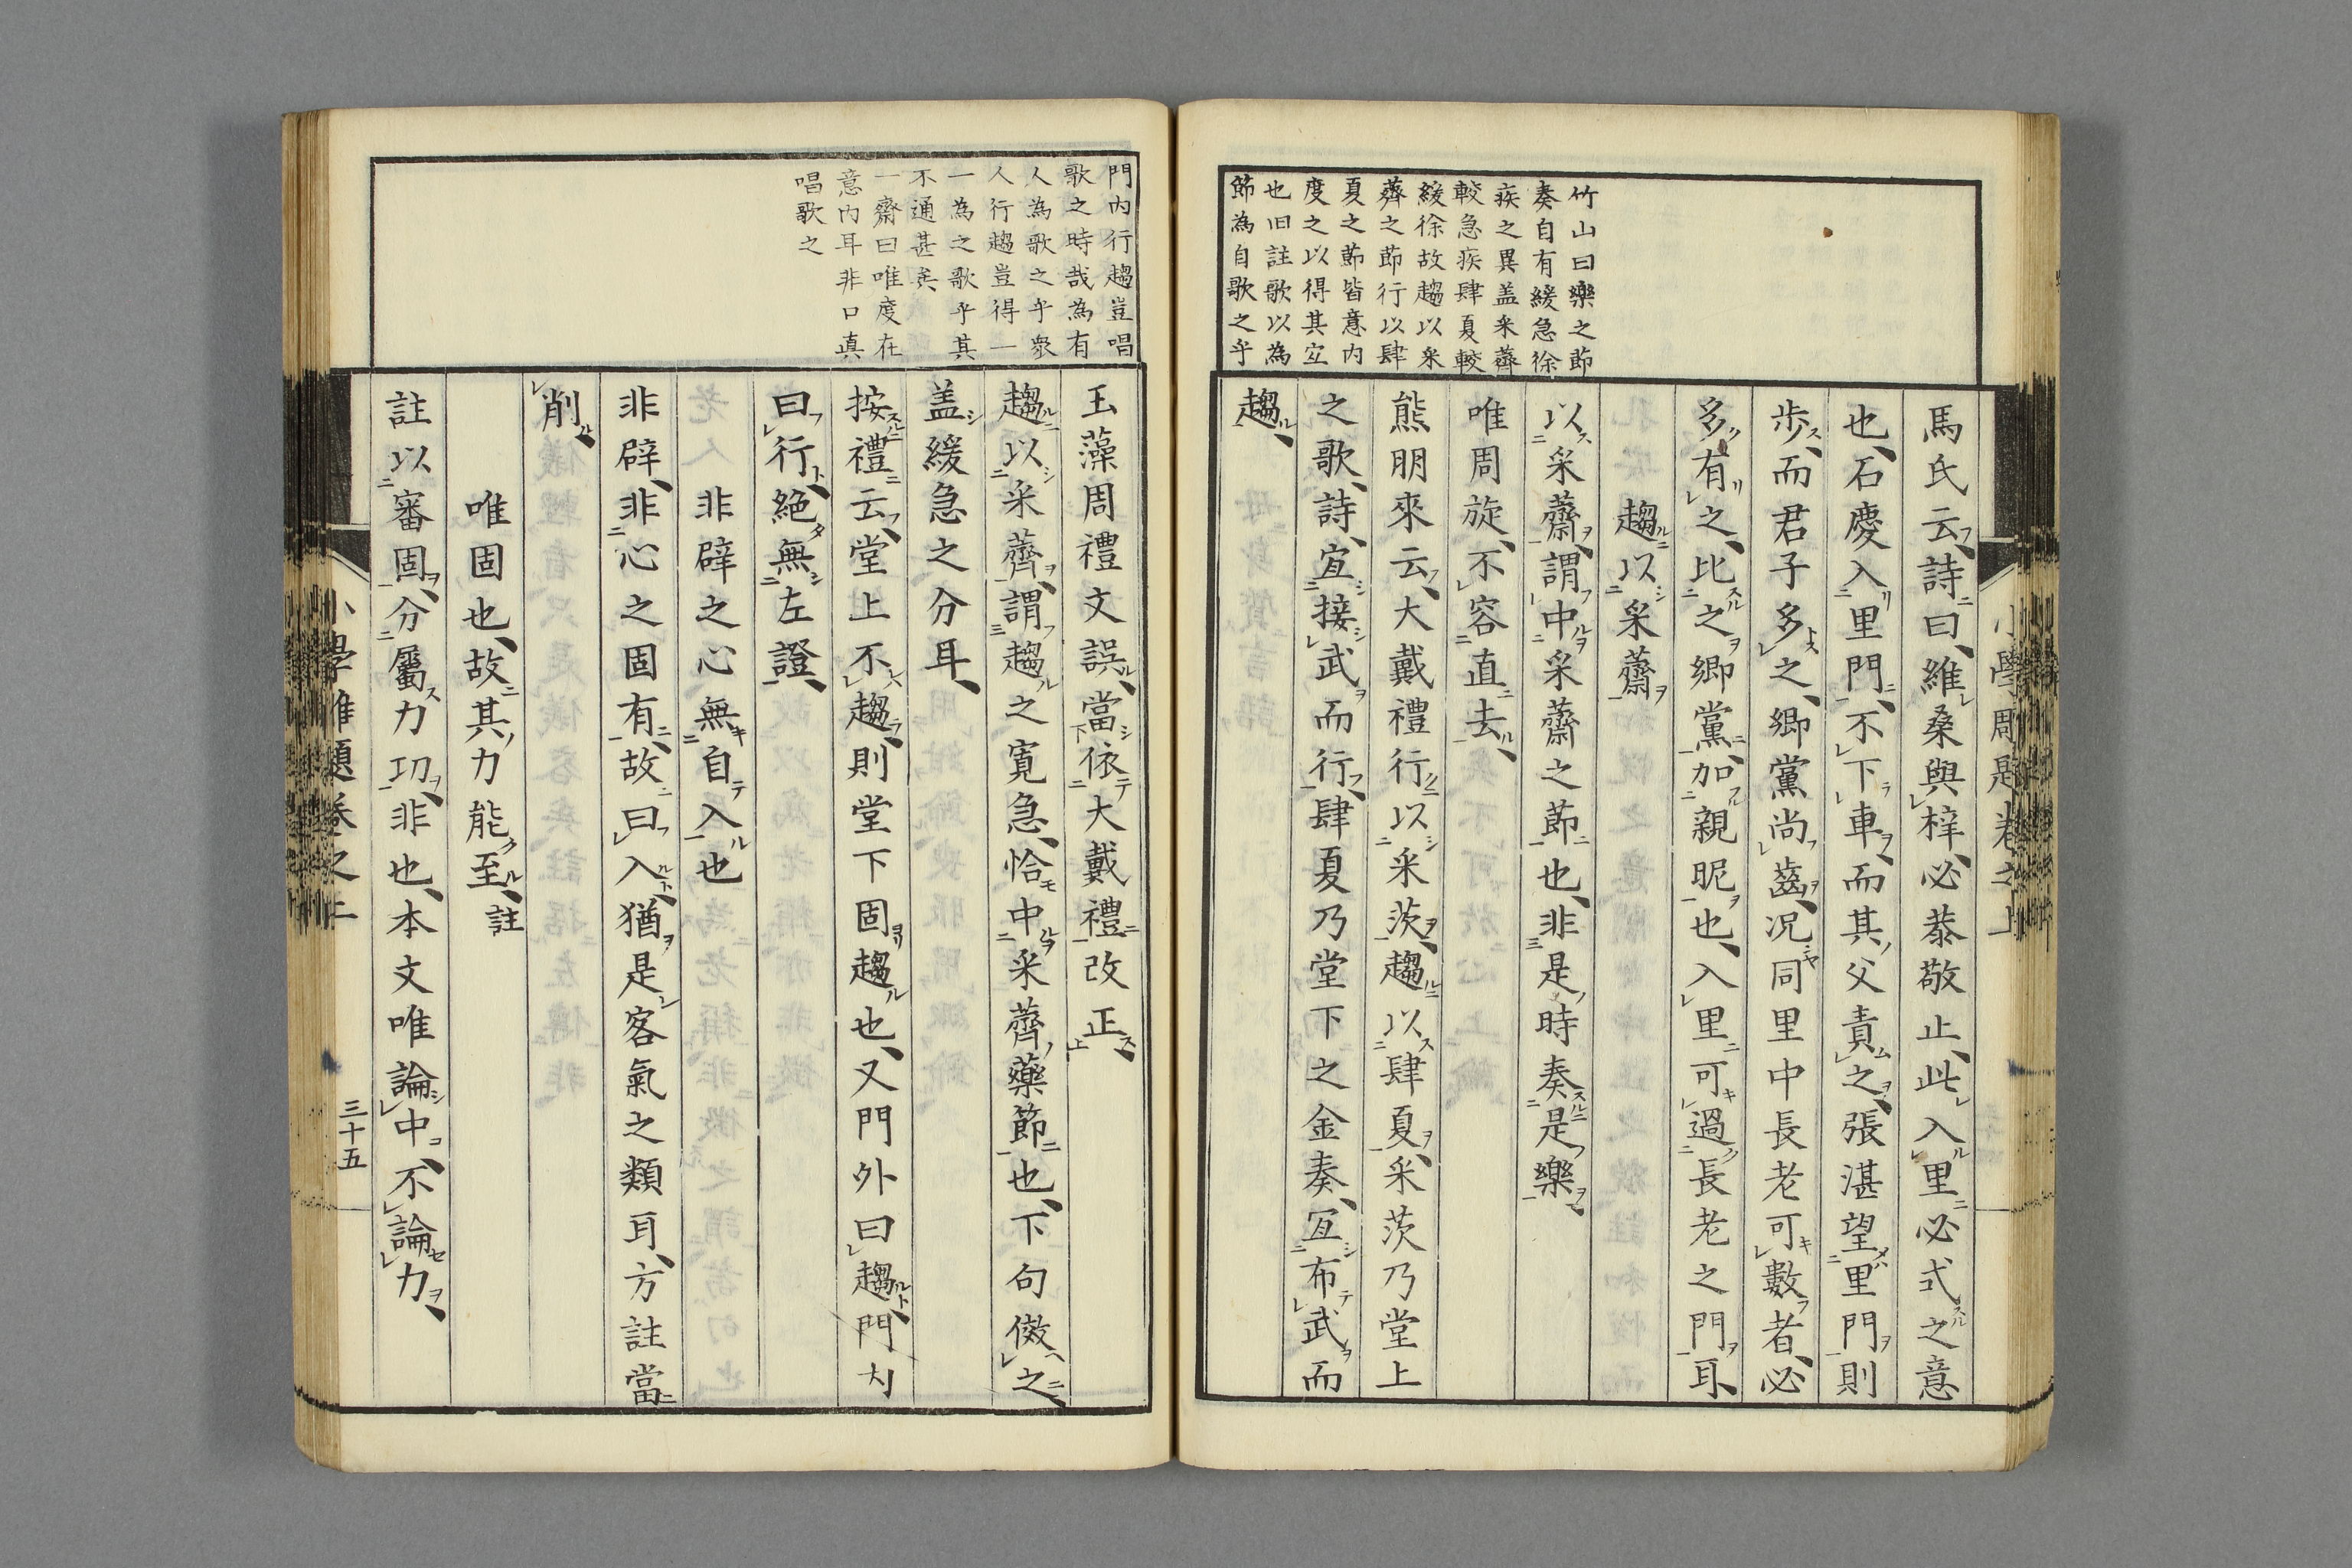 竹山曰樂之節
奏自有緩急徐
疾之異盖采薺
較急疾肆夏較
緩徐故趨以采
薺之節行以肆
夏之節皆意内
度之以得其宜
也旧註歌以為
節為自歌之乎
馬氏云詩曰維桑與梓必恭敬止此入里必式之意
也石慶入里門不下車而其父責之張湛望里門則
歩而君子多之郷黨尚齒况同里中長老可數者必
多有之比之郷黨加親昵也入里可過長老之門耳
趨以采齋
以采齋謂中采齋之節也非是時奏是樂
唯周旋不容直去
熊朋來云大戴禮行以采茨趨以肆夏采茨乃堂上
之歌詩宜接武而行肆夏乃堂下之金奏宜布武而
趨
門内行趨豈唱
歌之時哉為有
人為歌之乎衆
人行趨豈得一
一為之歌乎其
不通甚矣
一齋曰唯度在
意内耳非口真
唱歌之
玉藻周禮文誤當依大戴禮改正
趨以采薺謂趨之寛急恰中采薺樂節也下句倣之
盖緩急之分耳
按禮云堂上不趨則堂下固趨也又門外曰趨門内
曰行絶無左證
非辟之心無自入也
非辟非心之固有故曰入猶是客氣之類耳方註當
削
唯固也故其力能至註
註以審固分屬力功非也本文唯論中不論力
三十五